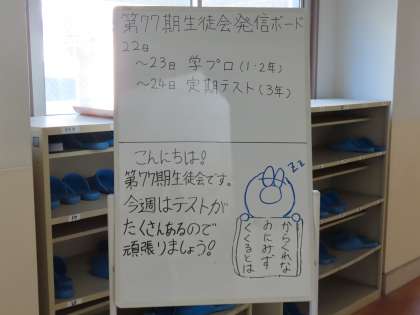 第77期生徒会発信ボード
22日
～23日 学プロ(1・2年)
～24日 定期テスト(3年)
こんにちは!
第77期生徒会です。
今週はテストが
たくさんあるので
頑張りましょう!
zz
からくれな
ゐにみず
くくるとは